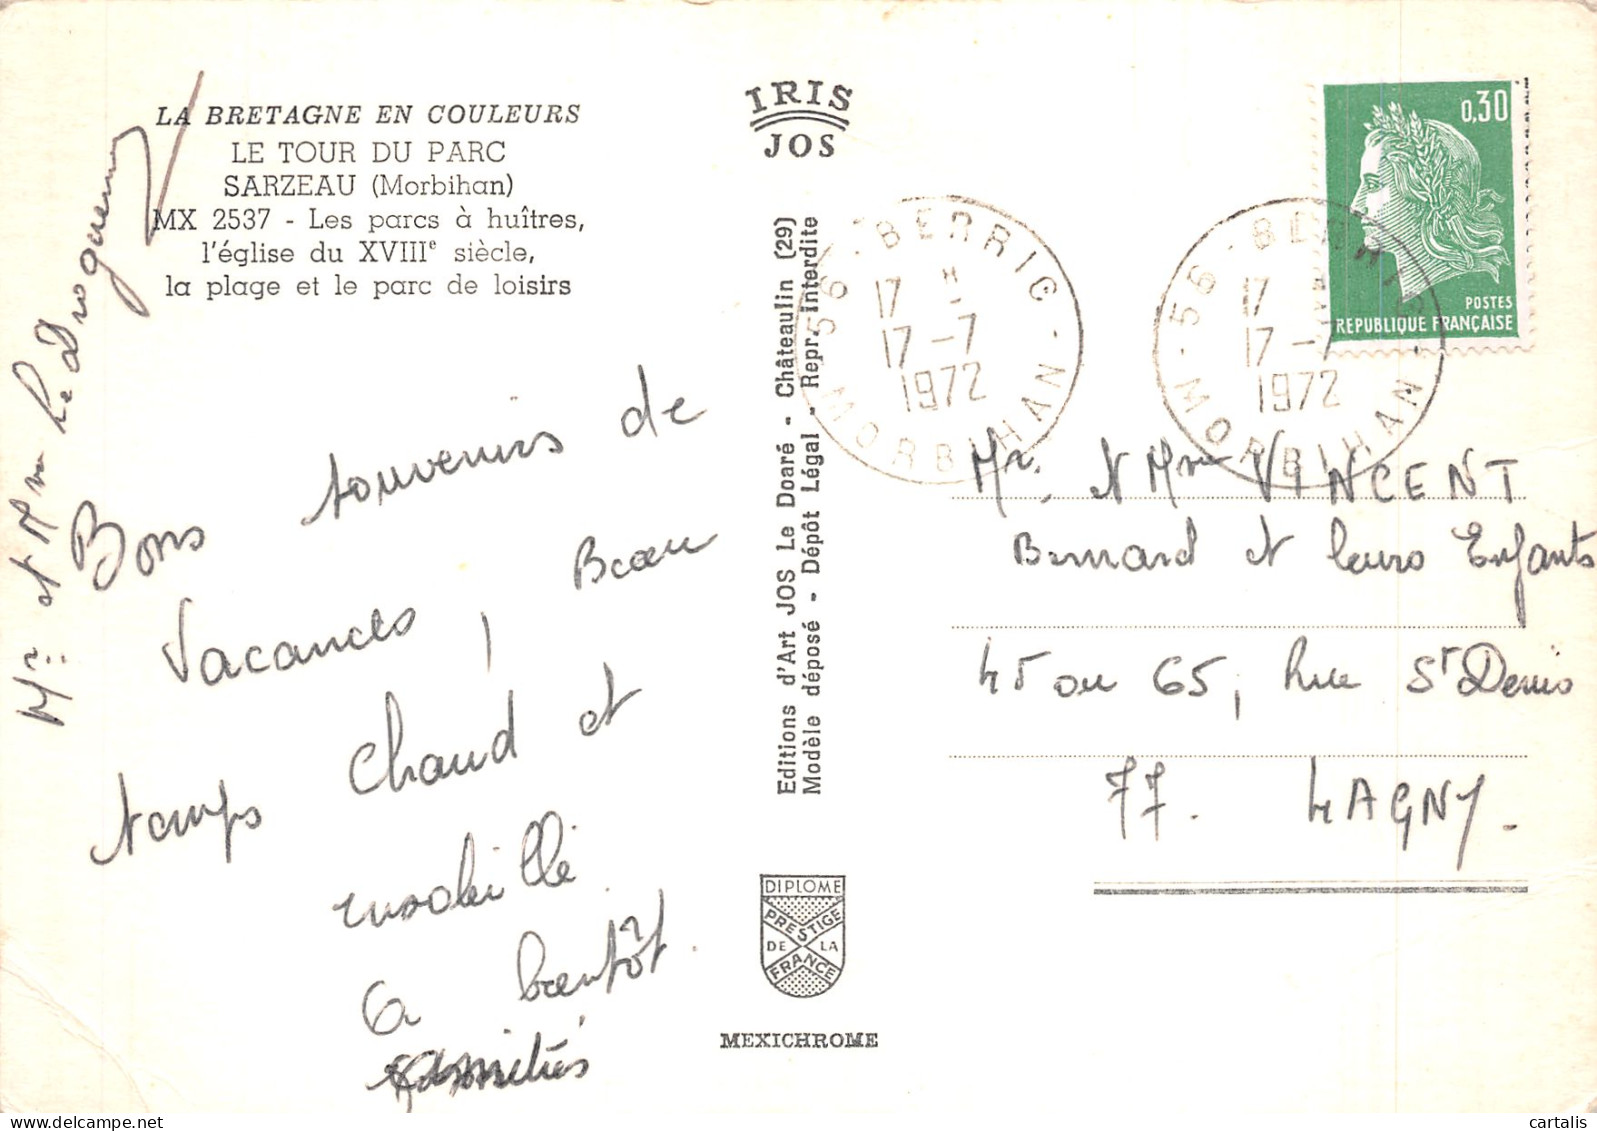 LA BRETAGNE EN COULEURS
LE TOUR DU PARC
SARZEAU (Morbihan)
MX 2537 - Les parcs à huîtres,
l'église du XVIIIe siècle,
la plage et le parc de loisirs
Bons souvenirs de
Vacances, Beau
temps chaud et
ensoleillé
a bientôt.
Amitiés
Mr et Mme Le
IRIS
JOS
Editions d'Art JOS Le Doaré - Châteaulin (29)
Modèle déposé - Dépôt Légal - Repr. Interdite
DIPLOME
PRESTIGE
DE LA
FRANCE
MEXICHROME
56 - BERRIC
17 H
17-7
1972
MORBIHAN
56 - BERRIC
17 H
17-7
1972
MORBIHAN
0,30
POSTES
REPUBLIQUE FRANÇAISE
Mr. et Mme VINCENT
Bernard et leurs Enfants
45 ou 65, Rue St Denis
77. LAGNY.
cartalis